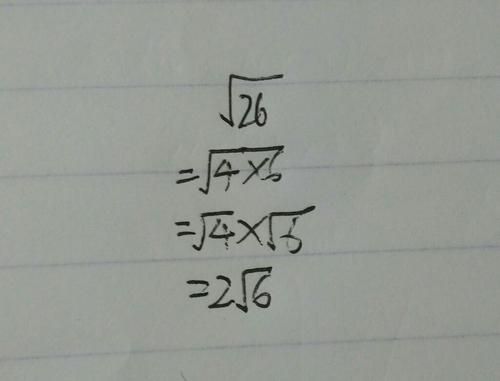 √26
=√4×6
=√4×√6
=2√6